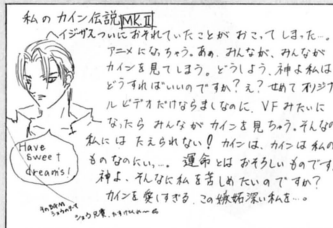 私のカイン伝説MK.II
ヘイジがえついにおそれていたことがおこってしまった…。
アニメになっちゃう。ああ、みんなが、みんなが
カインを見てしまう。どうしよう、神よ私は
どうすればいいのですか?え?せめてオリジナ
ルビデオだけならましなのに、VFみたいに
なったらみんながカインを見ちゃう。そんなの
私にはたえられない!カインは、カインは私の
ものなのにぃ…。運命とはおそろしいものです。
神よ、そんなに私を苦しめたいのですか?
カインを愛しすぎる、この嫉妬深い私を…。
Have
sweet
dreams!